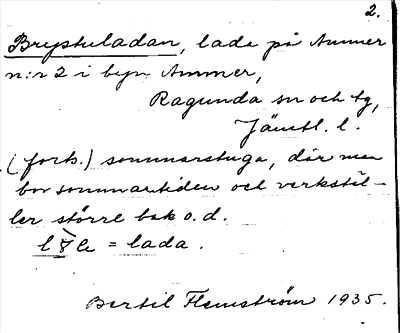 2.
Brystuladan, lada på Ammer
n:r 2 i byn Ammer,
Ragunda sn och tg,
Jämtl. l.
(forts.) sommarstuga, där man
bor sommartiden och verkstäl-
ler större bak o.d.
= lada.
Bertil Flemström 1935.